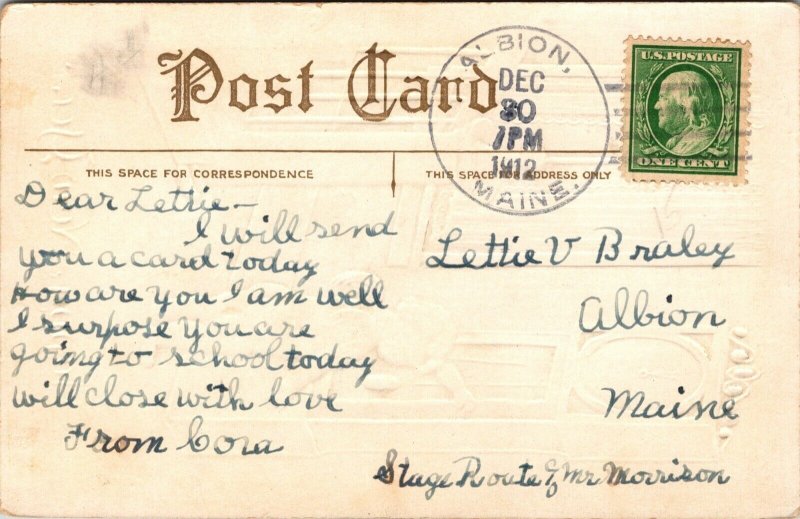 Post Card
ALBION,
DEC
30
7PM
1912
MAINE.
U.S. POSTAGE
ONE CENT
THIS SPACE FOR CORRESPONDENCE
THIS SPACE FOR ADDRESS ONLY
Dear Lettie —
I will send
you a card today
How are you I am well
I surpose you are
going to school today
will close with love
From Cora
Lettie V Braley
Albion
Maine
Stage Route % Mr Morrison